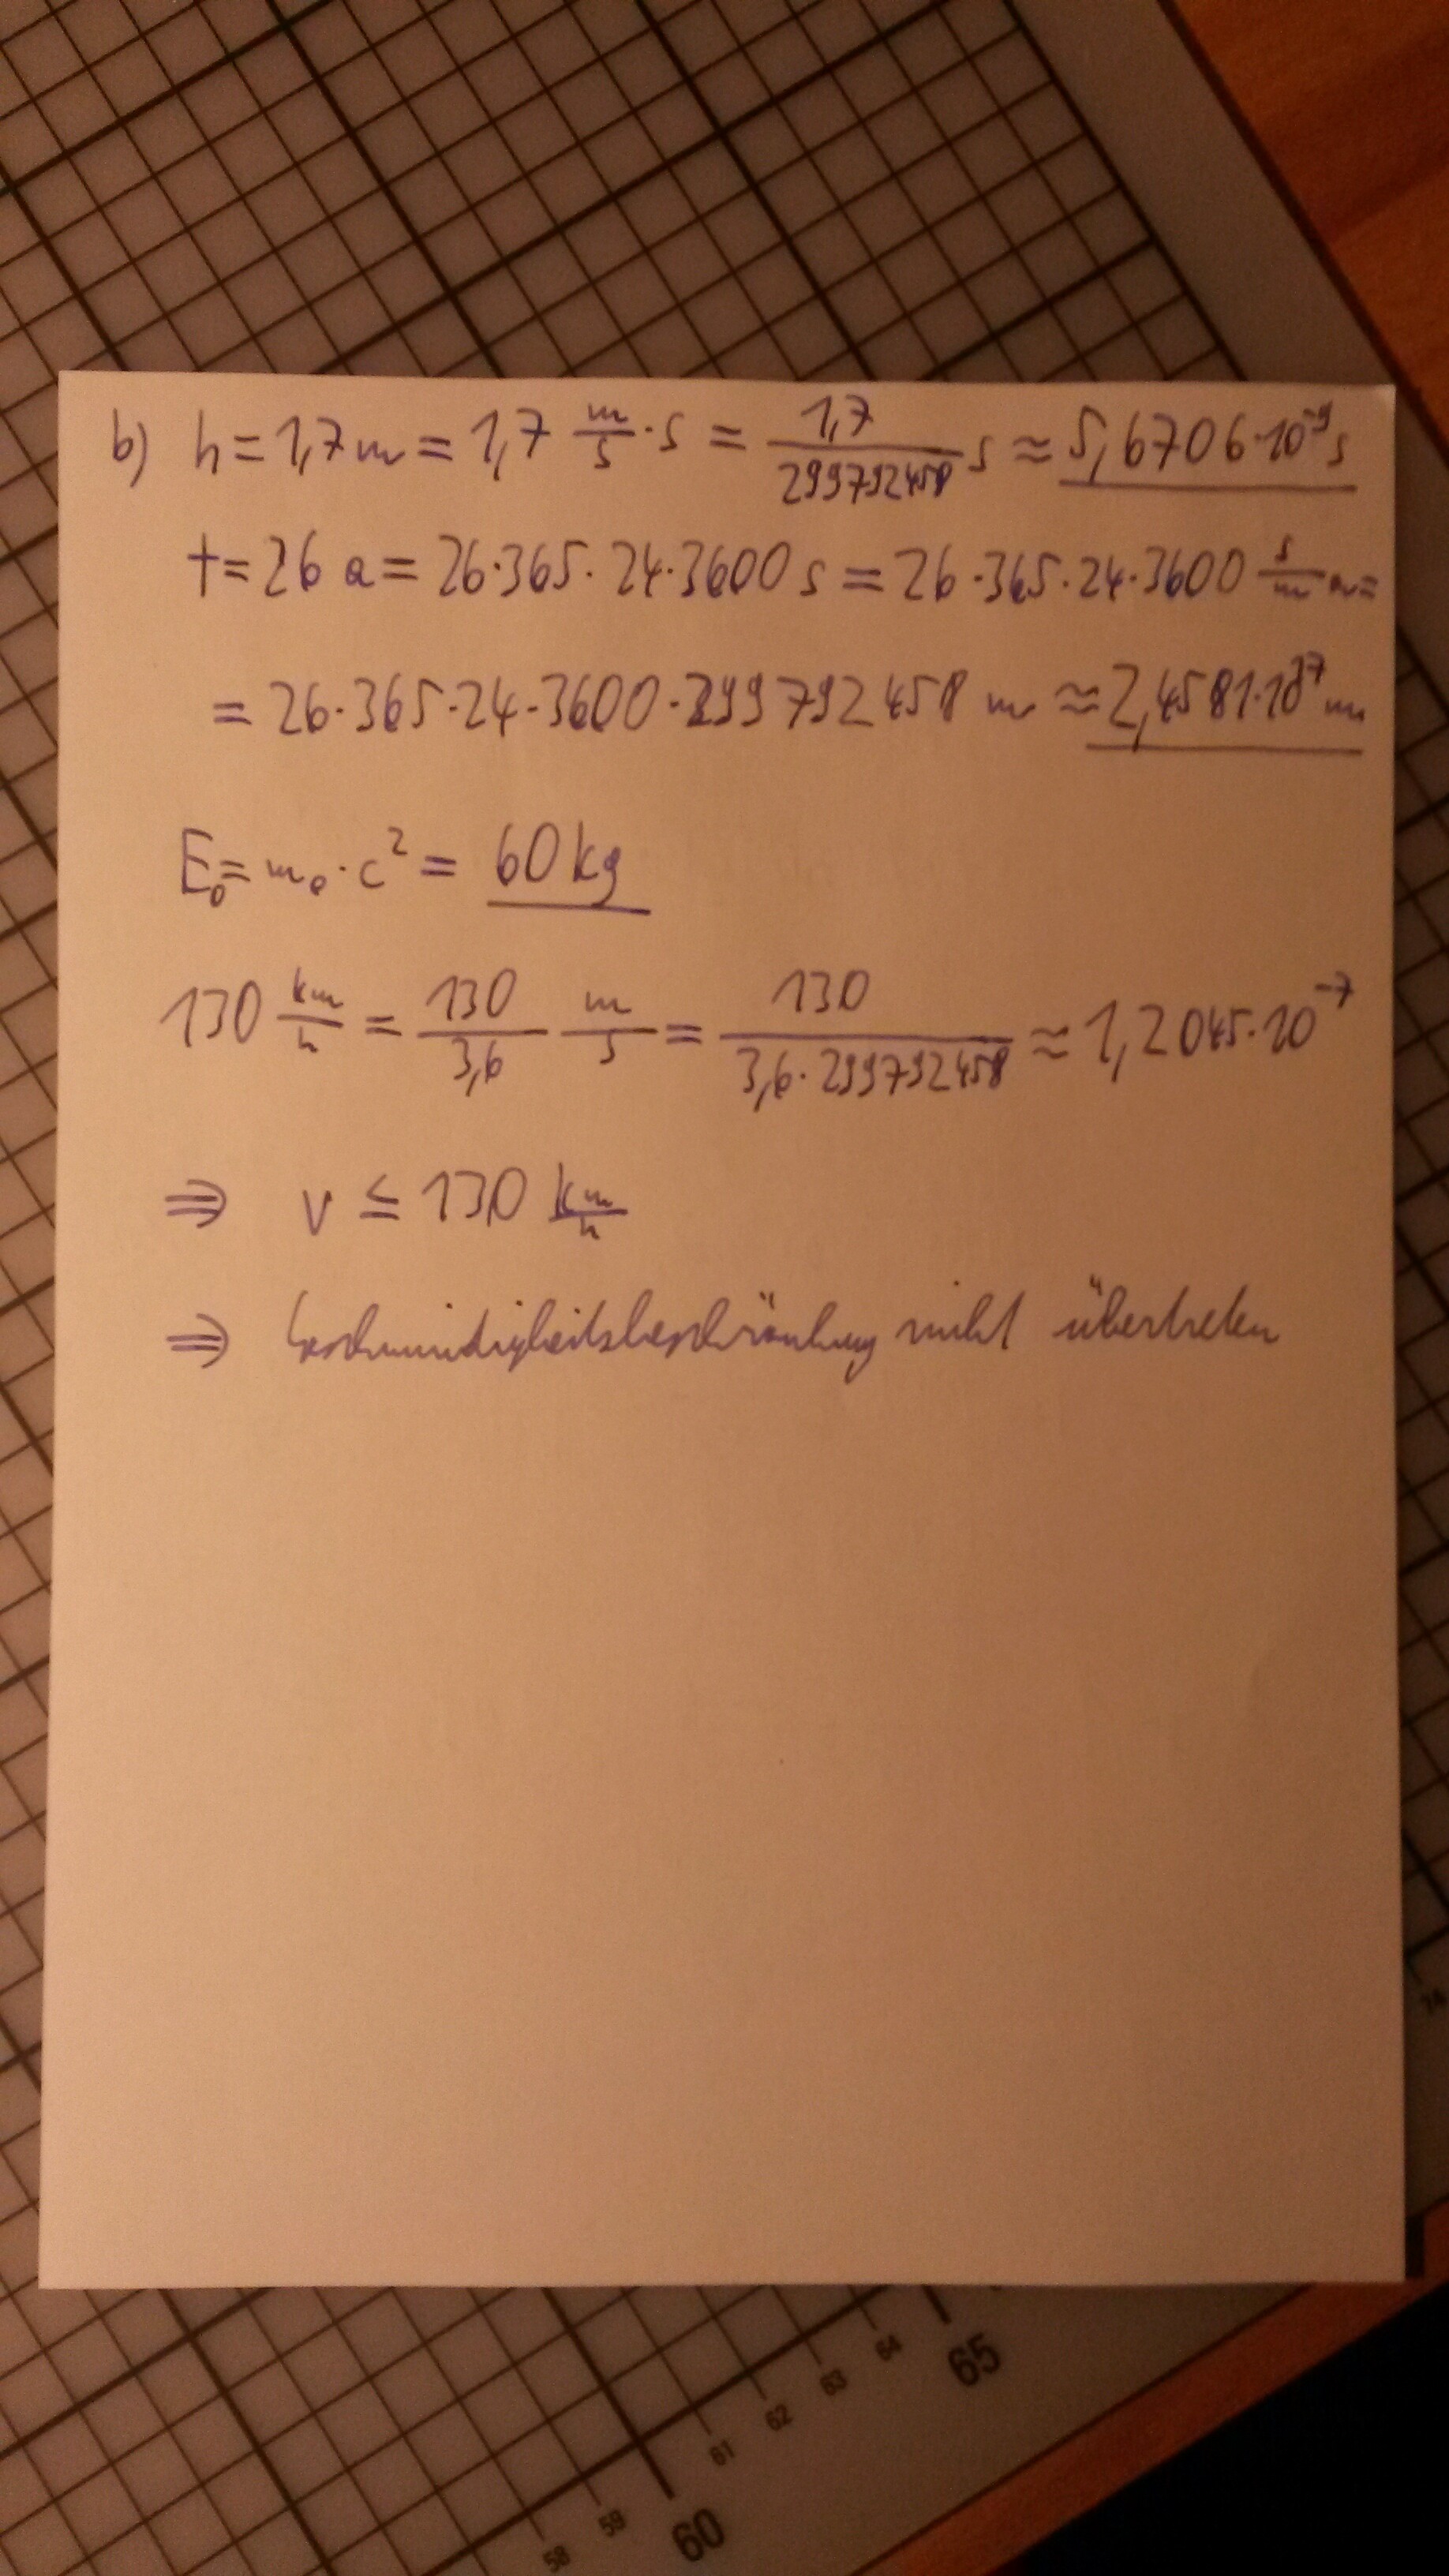 b) h = 1,7 m = 1,7 m/s · s = 1,7/299792458 s ≈ 5,6706·10⁻⁹ s
t = 26 a = 26·365·24·3600 s = 26·365·24·3600 s/m m =
= 26·365·24·3600·299792458 m ≈ 2,4581·10¹⁷ m
E₀ = m₀·c² = 60 kg
130 km/h = 130/3,6 m/s = 130/(3,6·299792458) ≈ 1,2045·10⁻⁷
⇒ v ≤ 130 km/h
⇒ Geschwindigkeitsbeschränkung nicht übertreten
74
65
64
63
62
61
60
59
58